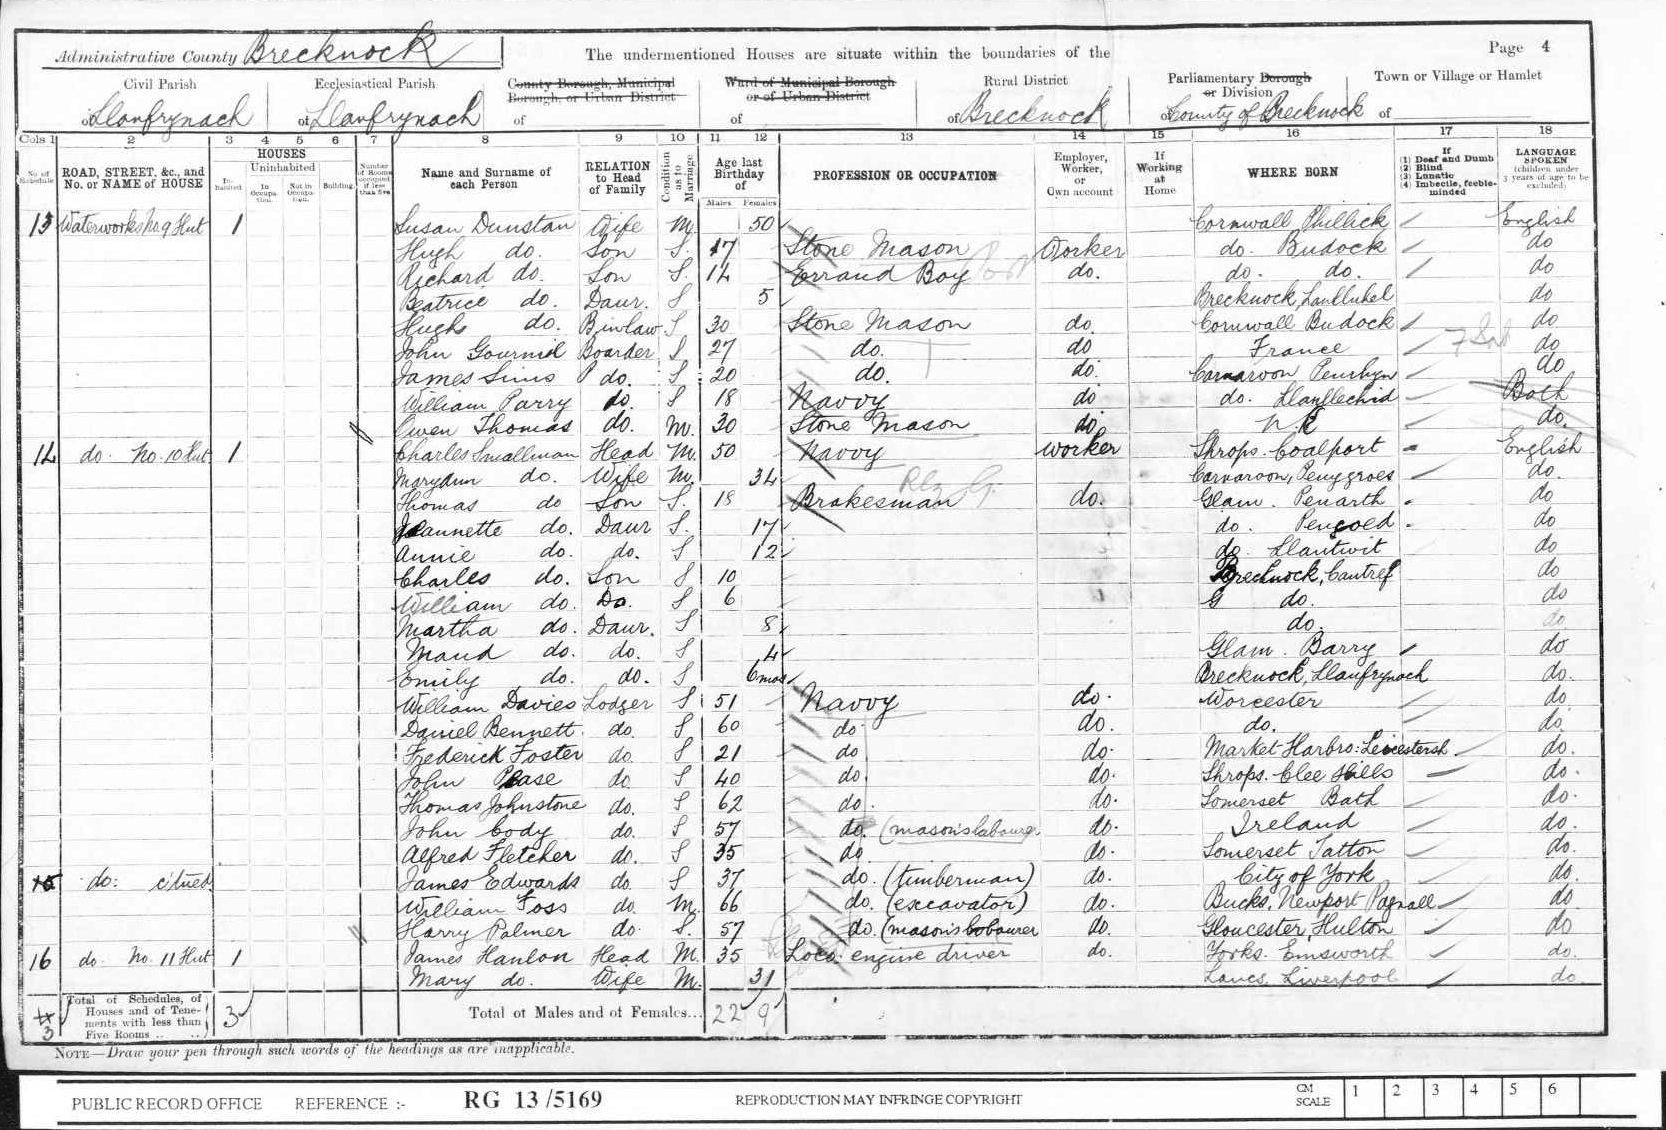 Administrative County Brecknock
The undermentioned Houses are situate within the boundaries of the
Page 4
Civil Parish
of Llanfrynach
Ecclesiastical Parish
of Llanfrynach
County Borough, Municipal
Borough, or Urban District
of
Ward of Municipal Borough
or of Urban District
of
Rural District
of Brecknock
Parliamentary Borough
or Division
of County of Brecknock
Town or Village or Hamlet
of
Cols 1 2 3 4 5 6 7 8 9 10 11 12 13 14 15 16 17 18
No. of Schedule
ROAD, STREET, &c., and
No. or NAME of HOUSE
HOUSES
Inhabited
Uninhabited
In Occupation.
Not in Occupation.
Building.
Number of Rooms occupied if less than five
Name and Surname of
each Person
RELATION
to Head
of Family
Condition as to Marriage
Age last
Birthday
of
Males Females
PROFESSION OR OCCUPATION
Employer,
Worker,
or
Own account
If
Working
at
Home
WHERE BORN
If
(1) Deaf and Dumb
(2) Blind
(3) Lunatic
(4) Imbecile, feeble-
minded
LANGUAGE
SPOKEN
(children under
3 years of age to be
excluded)
13 Waterworks No. 9 Hut 1 Susan Dunstan Wife M. 50 Cornwall Phillick English
Hugh do. Son S. 17 Stone Mason Worker do. Budock do
Richard do. Son S. 14 Errand Boy do. do. do. do
Beatrice do. Daur. S 5 Brecknock, do
Hugh do. Binlaw S 30 Stone Mason do. Cornwall Budock do
John Boarder S 27 do. do France do
James Sims do. S 20 do. do. Carnarvon Penrhyn do
William Parry do. S 18 Navvy do do. Llanllechid Both
Owen Thomas do. M. 30 Stone Mason do. N.K do.
14 do. No. 10 Hut 1 Charles Smallman Head M. 50 Navvy worker Shrops. Coalport English
Maryann do. Wife M. 34 Carnarvon, Penygroes do.
Thomas do Son S. 18 Brakesman do. Glam. Penarth do
Jeannette do. Daur S. 17 do. Pencoed do
Annie do. do. S 12 do. Llantwit do
Charles do. Son S 10 Brecknock, Cantref do
William do. Do. S 6 G do. do
Martha do. Daur. S 8 do. do
Maud do. do. S 4 Glam. Barry do
Emily do. do. S 6mos Brecknock, Llanfrynach do.
William Davies Lodger S 51 Navvy do. Worcester do
Daniel Bennett do. S 60 do do. do. do
Frederick Foster do. S 21 do do. Market Harbro: Leicestersh do.
John Pease do. S 40 do do. Shrops. Clee Hills do.
Thomas Johnstone do. S 62 do. do. Somerset Bath do.
John Cody do. S 57 do. (mason's labourer do. Ireland do.
Alfred Fletcher do. S 35 do do. Somerset Tatton do.
15 do: c'tued James Edwards do S 37 do. (timberman) do. City of York do.
William Foss do. M. 66 do. (excavator) do. Bucks, Newport Pagnall do
Harry Palmer do. S. 57 do. (mason's labourer do. Gloucester, Hulton do
16 do. No. 11 Hut 1 James Hanlon Head M. 35 Loco. engine driver do. Yorks. Emsworth do.
Mary do. Wife M. 31 Lancs. Liverpool do
3
Total of Schedules, of
Houses and of Tene-
ments with less than
Five Rooms
3
Total of Males and of Females... 22 9
NOTE—Draw your pen through such words of the headings as are inapplicable.
PUBLIC RECORD OFFICE REFERENCE :- RG 13 /5169 REPRODUCTION MAY INFRINGE COPYRIGHT
CM
SCALE
1 2 3 4 5 6